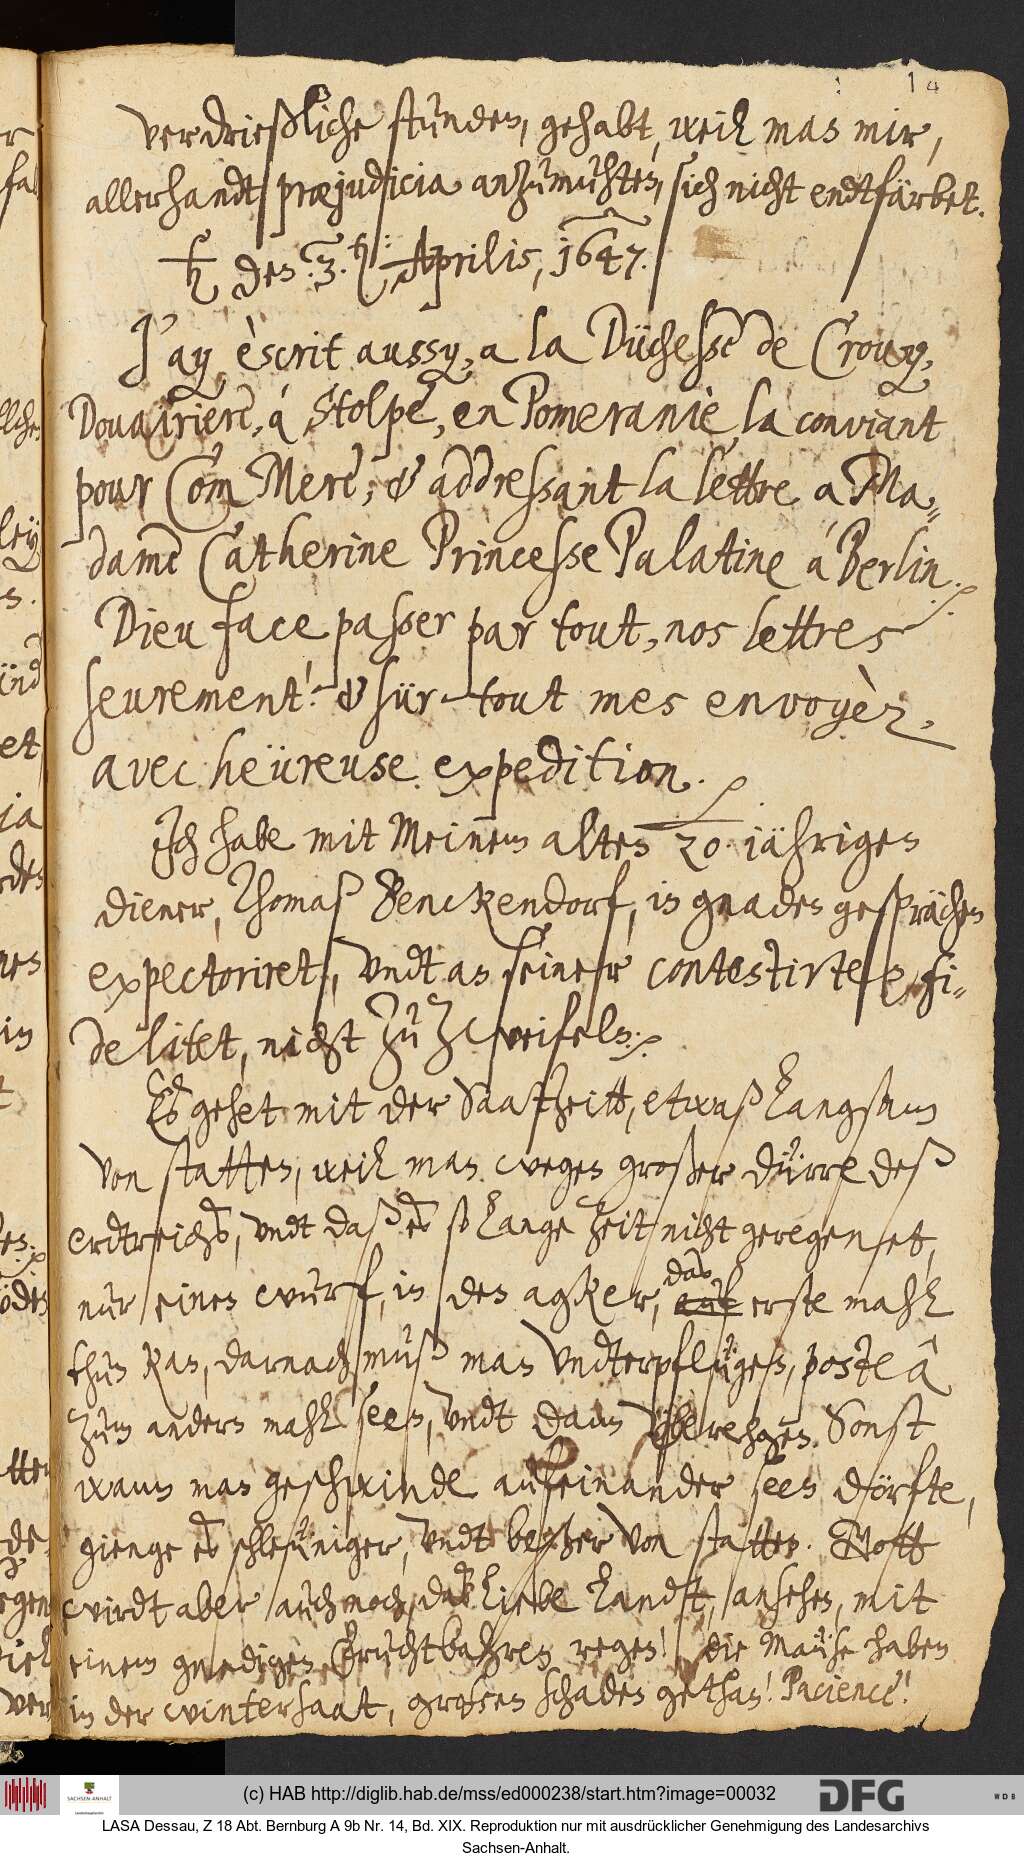 14
verdrießliche stunden, gehabt, weil man mir,
allerhandt præjudicia anzumuhten, sich nicht endtfärbet.
♄ den: 3. Aprilis, 1647.
J'ay, èscrit aussy, a la Düchesse de Crouy,
Douairiere, á Stolpe, en Pomeranie la conviant
pour Com Mere, & addressant la lettre a Ma„
dame Catherine Princesse Palatine á Berlin.
Dieu face passer par tout, nos lettres
seurement! & sür-tout mes envoyèz,
avec heüreuse expedition.
Ich habe mit Meinem alten 20. iährigen
diener, Thomaß Benckendorf, in gnaden gesprächen
expectoriret, undt an seiner contestirten, fi„
delitet, nicht zu zweifeln.
Es gehet mit der Saatzeitt, etwaß langsam
von statten, weil man wegen großer dürre deß
erdtreichs, undt daß es so lange zeit nicht geregenet,
nur einen wurf, in den agker, das auf erste mahl
thun kan, darnach muß man undterpflügen, postea
zum andern mahl seen, undt dann uberehgen. Sonst
wann man geschwinde aufeinander seen dörfte,
gienge es schleuniger, undt beßer von statten. Gott
wirdt aber auch noch, daß liebe landt, ansehen, mit
einem gnedigen fruchtbahren regen! die Mäuse haben
in der wintersaat, großen schaden gethan! Pacience!
(c) HAB http://diglib.hab.de/mss/ed000238/start.htm?image=00032
SACHSEN-ANHALT
DFG
WDB
LASA Dessau, Z 18 Abt. Bernburg A 9b Nr. 14, Bd. XIX. Reproduktion nur mit ausdrücklicher Genehmigung des Landesarchivs
Sachsen-Anhalt.